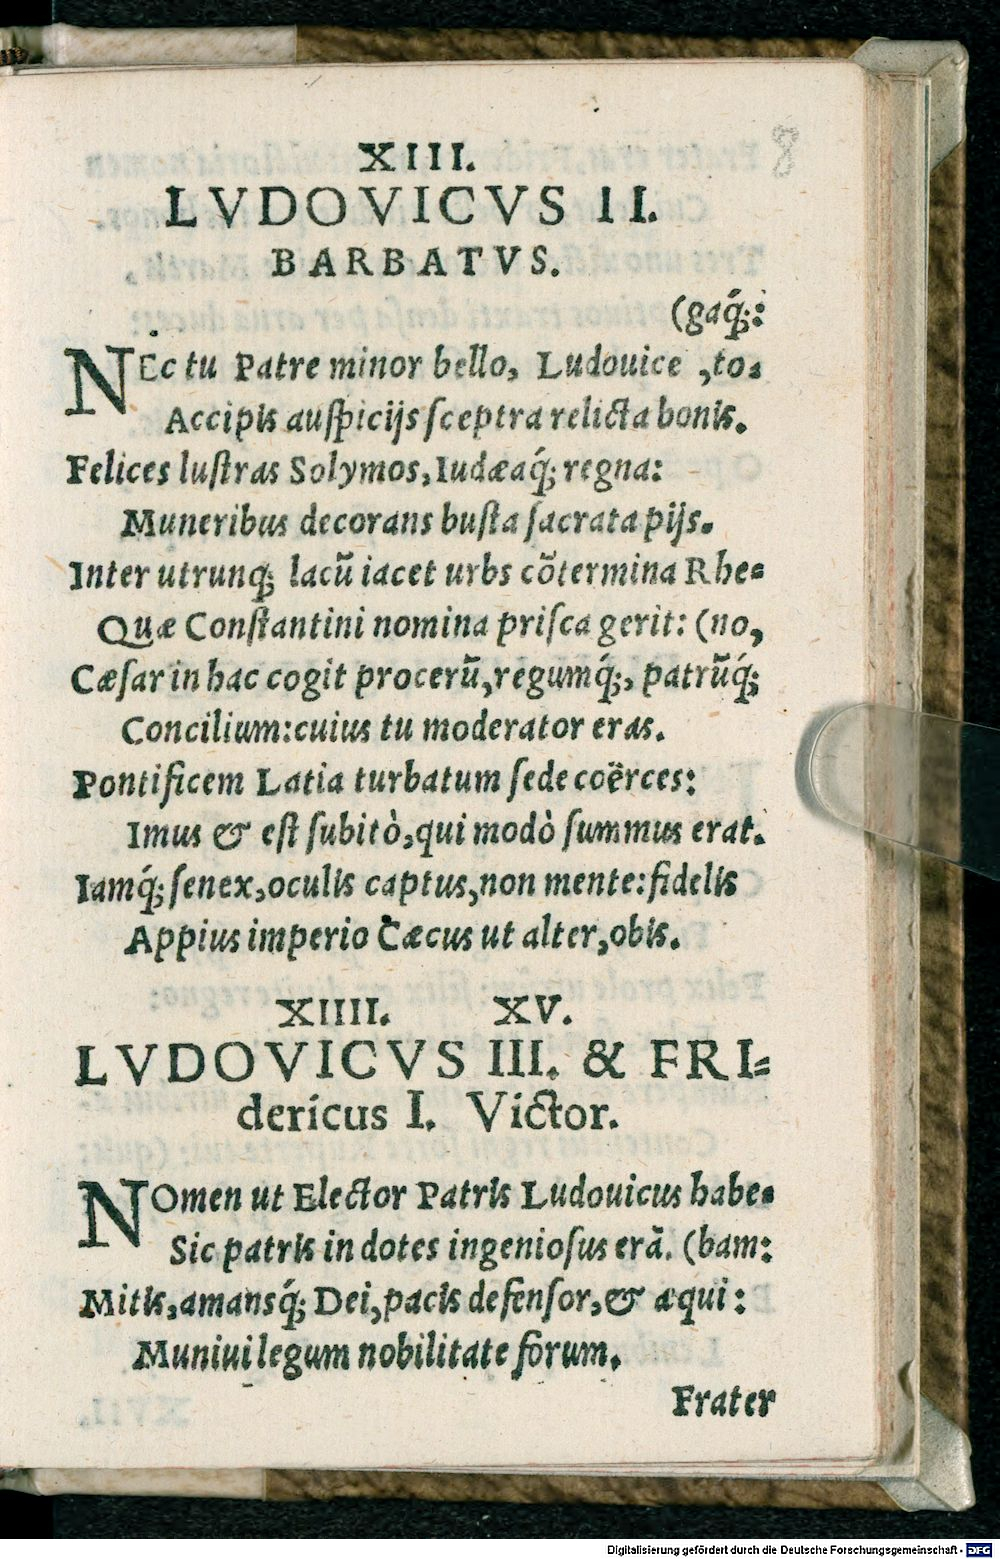 8
XIII.
LVDOVICVS II.
BARBATVS.
(gaq́;:
NEc tu Patre minor bello, Ludouice ,to-
Accipis auſpicijs ſceptra relicta bonis.
Felices luſtras Solymos, Iudæaq́; regna:
Muneribus decorans buſta ſacrata pijs.
Inter utrunq; lacũ iacet urbs cõtermina Rhe-
Quæ Conſtantini nomina priſca gerit: (no,
Cæſar in hac cogit procerũ, regumq́;, patrũq́;
Concilium: cuius tu moderator eras.
Pontificem Latia turbatum ſede coërces:
Imus & eſt ſubitò, qui modò ſummus erat.
Iamq́; ſenex, oculis captus, non mente: fidelis
Appius imperio Cæcus ut alter, obis.
XIIII. XV.
LVDOVICVS III. & FRI-
dericus I. Victor.
NOmen ut Elector Patris Ludouicus habe-
Sic patris in dotes ingenioſus erã. (bam:
Mitis, amansq́; Dei, pacis defenſor, & æqui:
Muniui legum nobilitate forum.
Frater
Digitalisierung gefördert durch die Deutsche Forschungsgemeinschaft - DFG